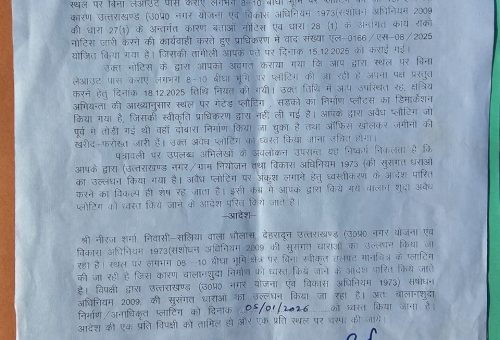 स्थल पर बिना लेआउट पास कराए लगभग 8-10 बीघा भूमि पर प्लाटिंग
कारण उत्तराखण्ड (उ0प्र0 नगर योजना एवं विकास अधिनियम 1973(संशोधन अधिनियम 2009
की धारा 27(1) के अन्तर्गत कारण बताओ नोटिस एवं धारा 28 (1) के अन्तर्गत कार्य रोको
नोटिस जारी करने की कार्यवाही करते हुए प्राधिकरण में वाद संख्या एल-0166/एस-08/2025
योजित किया गया है। जिसकी तामीली आपके पते पर दिनांक 15.12.2025 को कराई गई।
उक्त नोटिस के द्वारा आपको अवगत कराया गया कि आप द्वारा स्थल पर बिना
लेआउट पास कराए लगभग 8-10 बीघा भूमि पर प्लाटिंग की जा रही है अपना पक्ष प्रस्तुत
करने हेतु दिनांक 18.12.2025 तिथि नियत की गयी। उक्त तिथि में आप उपस्थित रहे, क्षेत्रिय
अभियन्ता की आख्यानुसार स्थल पर गेटेड प्लाटिंग, सडको का निर्माण प्लॉटस का डिमार्केशन
किया गया है, जिसकी स्वीकृति प्राधिकरण द्वारा नही ली गई है। आपके द्वारा अवैध प्लॉटिंग जो
पूर्व में तोड़ी गई थी वहाँ दोबारा निर्माण किया जा चुका है तथा ऑफिस खोलकर जमीनों की
खरीद-फरोख्त जारी है। उक्त अवैध प्लॉटिंग को ध्वस्त किया जाना उचित होगा।
पत्रावली पर उपलब्ध अभिलेखों के अवलोकन उपरान्त यह निष्कर्ष निकलता है कि
आपके द्वारा (उत्तराखण्ड नगर/ग्राम नियोजन तथा विकास अधिनियम 1973 (की सुसंगत धाराओं
का उल्लंघन किया गया है। अवैध प्लॉटिंग पर अंकुश लगाने हेतु ध्वस्तीकरण के आदेश पारित
करने का विकल्प ही शेष रह जाता है। इसी क्रम में आपके द्वारा किये गये चालान शुदा अवैध
प्लॉटिंग को ध्वस्त किये जाने के आदेश पारित किये जाते है।
-आदेश-
श्री नीरज शर्मा, निवासी- सलिया वाला धौलास, देहरादून उत्तराखण्ड (उ0प्र0 नगर योजना एवं
विकास) अधिनियम 1973(संशोधन अधिनियम 2009 की सुसंगत धाराओं का उल्लंघन किया जा
रहा है। स्थल पर लगभग 08-10 बीघा भूमि क्षेत्र पर बिना स्वीकृत मानचित्र के प्लाटिंग
की जा रही है जिस कारण चालानशुदा निर्माण को ध्वस्त किये जाने के आदेश पारित किये जाते
है। विपक्षी द्वारा उत्तराखण्ड (उ0प्र0 नगर योजना एवं विकास अधिनियम 1973) संशोधन
अधिनियम 2009, की सुसंगत धाराओं का उल्लंघन किया जा रहा है। अतः चालानशुदा
निर्माण/अनाधिकृत प्लाटिंग को दिनांक 05/01/2026 को ध्वस्त किया जाना है।
आदेश की एक प्रति विपक्षी को तामिल हो और एक प्रति स्थल पर चस्पा की जाये।